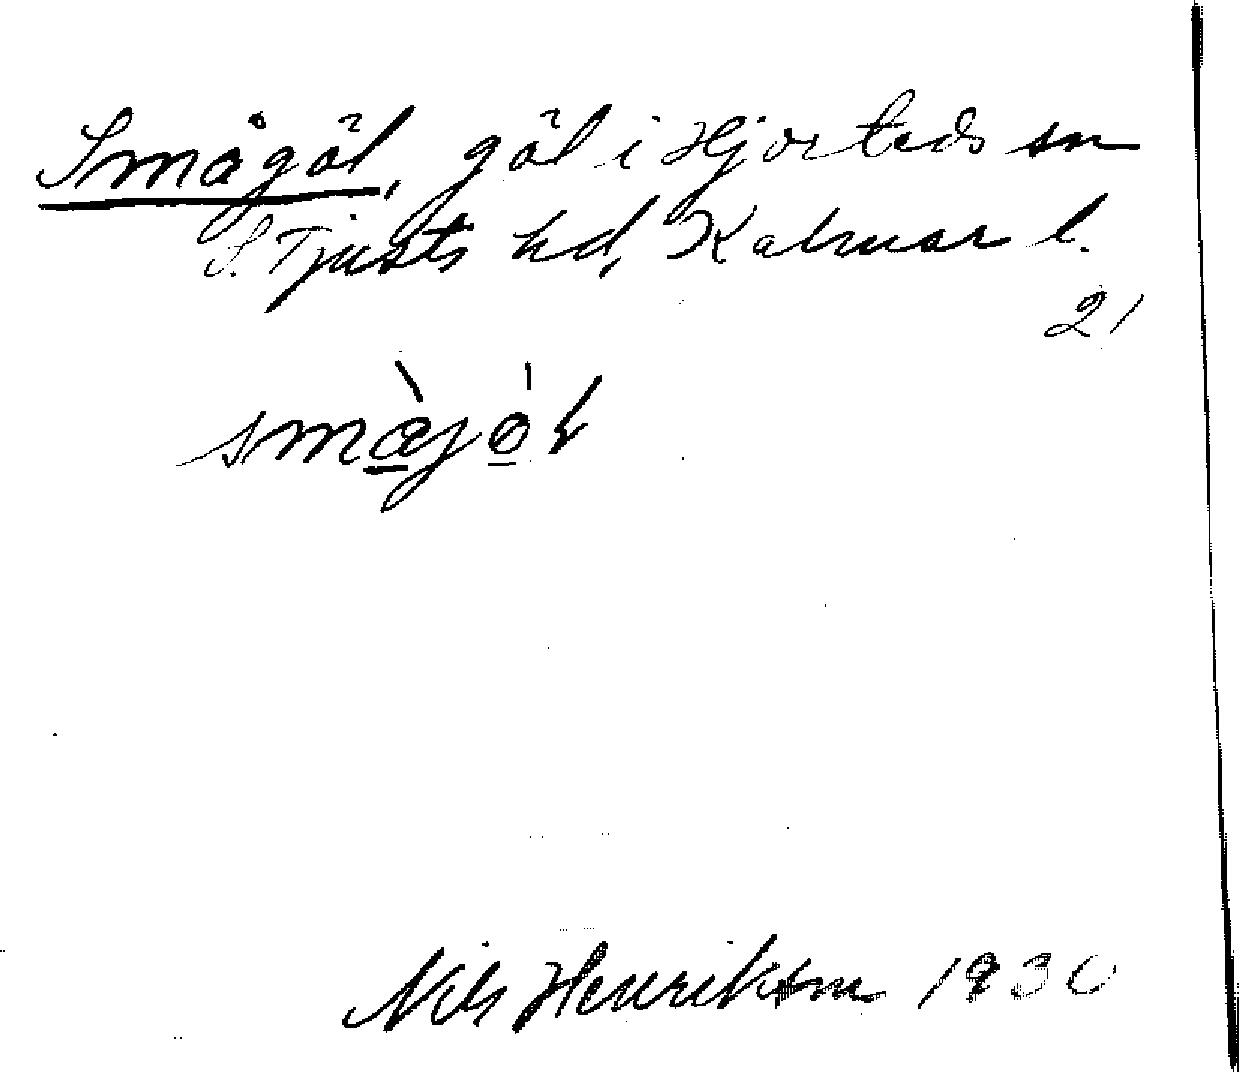 Smågöl, göl i Hjorteds sn
S. Tjusts hd, Kalmar l.
21
Nils Henrikson 1930